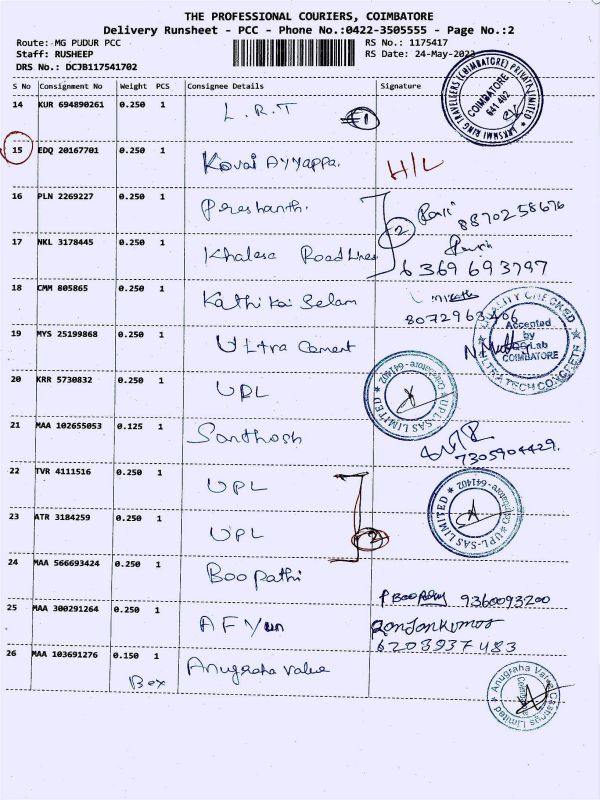 THE PROFESSIONAL COURIERS, COIMBATORE
Delivery Runsheet - PCC - Phone No.:0422-3505555 - Page No.:2
Route: MG PUDUR PCC
RS No.: 1175417
Staff: RUSHEEP
RS Date: 24-May-2022
DRS No.: DCJB117541702
S No Consignment No Weight PCS Consignee Details Signature
14 KUR 694890261 0.250 1 L.R.T
LAKSHMI RING TRAVELLERS (COIMBATORE) PRIVATE LIMITED
COIMBATORE
641 402
15 EDQ 20167701 0.250 1 Kovai Ayyappa. H/L
16 PLN 2269227 0.250 1 Preshanth. 2 8870258676
17 NKL 3178445 0.250 1 Khalesa Road Lines 6369693797
18 CMM 805865 0.250 1 Kathikai Selam 8072963466
19 MYS 25199868 0.250 1 Ultra Cement
QUALITY CHECKED
Accepted
by
Lab
COIMBATORE
ULTRA TECH CONCRETE
20 KRR 5730832 0.250 1 UPL
UPL-SAS LIMITED
Coimbatore-641402
21 MAA 102655053 0.125 1 Santhosh 7305904429.
22 TVR 4111516 0.250 1 UPL
UPL-SAS LIMITED
Coimbatore-641402
23 ATR 3184259 0.250 1 UPL 2
24 MAA 566693424 0.250 1 Boopathi P Boopathy 9360093200
25 MAA 300291264 0.250 1 AFYun Ranjankumar
6203937483
26 MAA 103691276 0.150 1 Anugraha Value
Box
Anugraha Value Castings Limited
Coimbatore